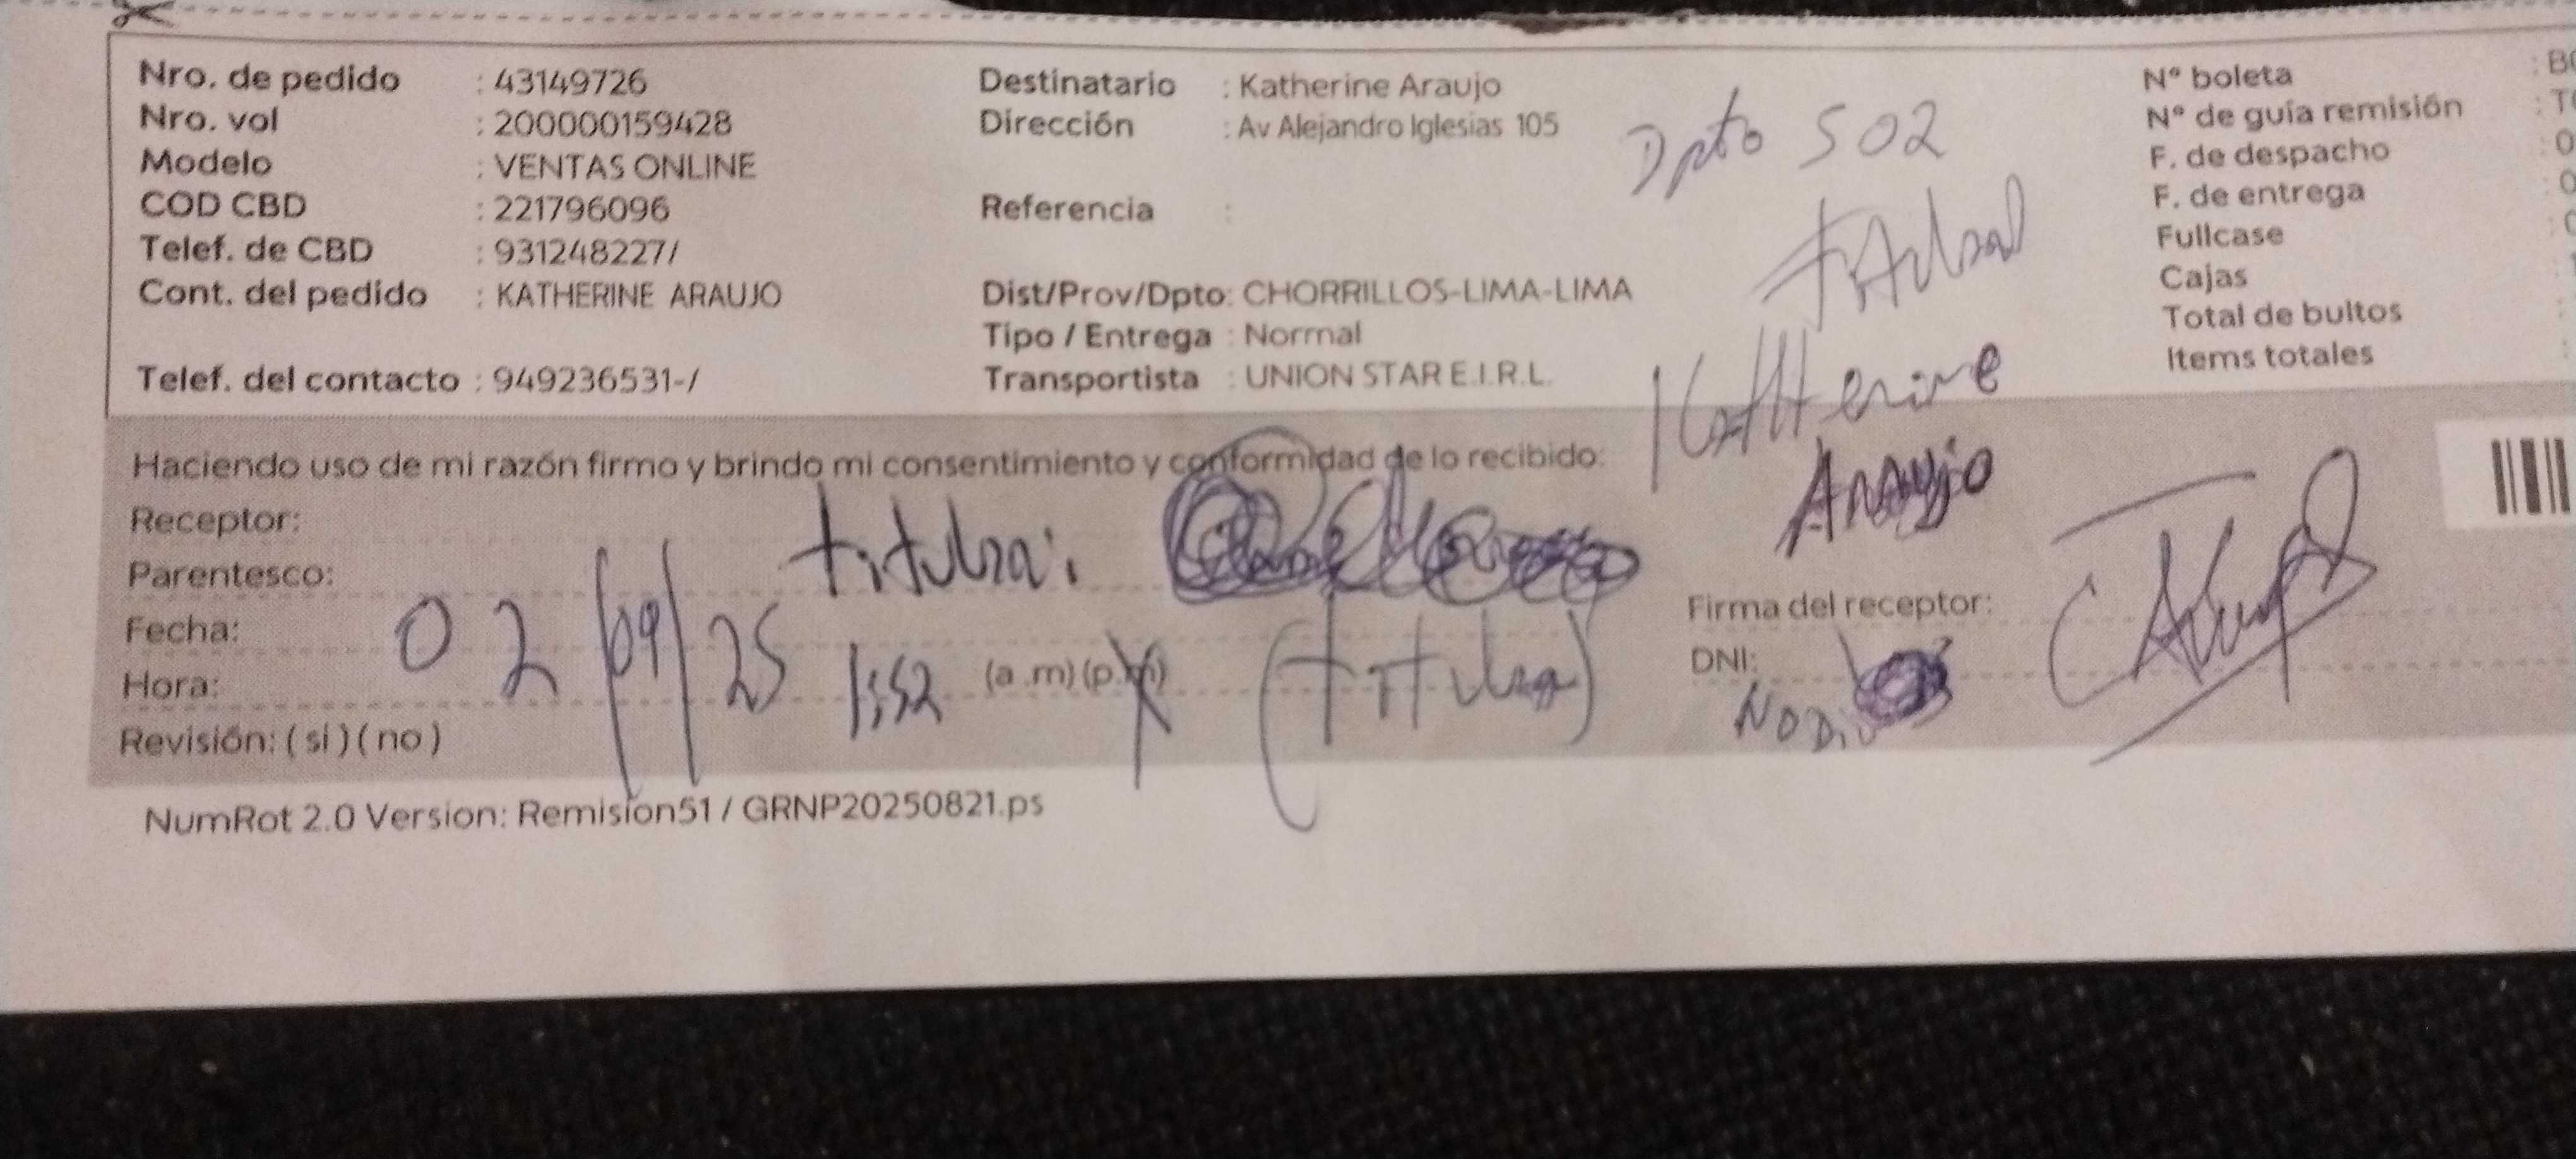 Nro. de pedido : 43149726
Nro. vol : 200000159428
Modelo : VENTAS ONLINE
COD CBD : 221796096
Telef. de CBD : 931248227/
Cont. del pedido : KATHERINE ARAUJO
Telef. del contacto : 949236531-/
Destinatario : Katherine Araujo
Dirección : Av Alejandro Iglesias 105
Referencia :
Dist/Prov/Dpto: CHORRILLOS-LIMA-LIMA
Tipo / Entrega : Normal
Transportista : UNION STAR E.I.R.L.
Dpto 502
Katherine
Araujo
N° boleta
N° de guía remisión
F. de despacho
F. de entrega
Fullcase
Cajas
Total de bultos
Items totales
Haciendo uso de mi razón firmo y brindo mi consentimiento y conformidad de lo recibido:
Receptor:
Parentesco:
Fecha: 02/09/25
Hora: 1:52 (a.m) (p.m)
Revisión: ( si ) ( no )
Firma del receptor:
DNI:
NumRot 2.0 Version: Remision51 / GRNP20250821.ps